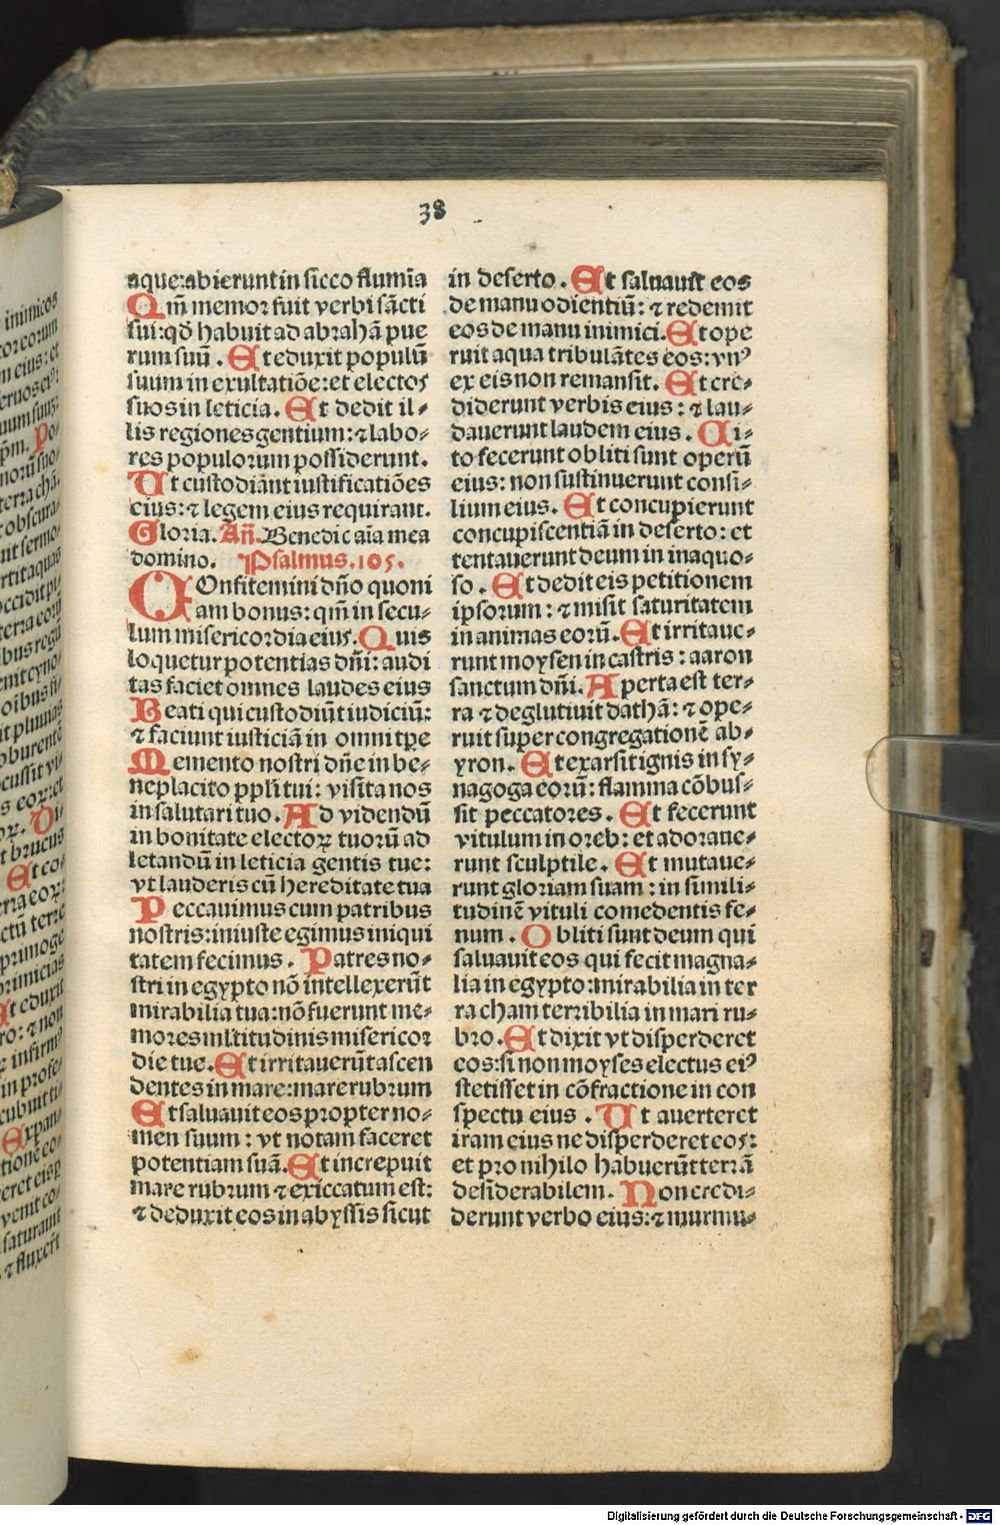 38
aque:abierunt in sicco flumīa
Qm̄ memor fuit verbi sācti
sui:qd̄ habuit ad abrahā pue
rum suū. Et eduxit populū
suum in exultatiōe:et electos
suos in leticia. Et dedit il-
lis regiones gentium:⁊ labo-
res populorum possiderunt.
Ut custodiānt iustificatiōes
eius:⁊ legem eius requirant.
Gloria. Añ. Benedic aīa mea
domino. Psalmus.105.
COnfitemini dño quoni
am bonus:qm̄ in secu-
lum misericordia eius. Quis
loquetur potentias dñi:audi
tas faciet omnes laudes eius
Beati qui custodiūt iudiciū:
⁊ faciunt iusticiā in omni tpe
Memento nostri dñe in be-
neplacito ppli tui: visita nos
in salutari tuo. Ad videndū
in bonitate electoꝝ tuorū ad
letandū in leticia gentis tue:
vt lauderis cū hereditate tua
Peccauimus cum patribus
nostris:iniuste egimus iniqui
tatem fecimus. Patres no-
stri in egypto nō intellexerūt
mirabilia tua:nō fuerunt me-
mores mltitudinis misericor
die tue. Et irritauerūt ascen
dentes in mare:mare rubrum
Et saluauit eos propter no-
men suum: vt notam faceret
potentiam suā. Et increpuit
mare rubrum ⁊ exiccatum est:
⁊ deduxit eos in abyssis sicut
in deserto. Et saluauit eos
de manu odientiū: ⁊ redemit
eos de manu inimici. Et ope
ruit aqua tribulātes eos:vnꝰ
ex eis non remansit. Et cre-
diderunt verbis eius: ⁊ lau-
dauerunt laudem eius. Ci-
to fecerunt obliti sunt operū
eius: non sustinuerunt consi-
lium eius. Et concupierunt
concupiscentiā in deserto: et
tentauerunt deum in inaquo-
so. Et dedit eis petitionem
ipsorum: ⁊ misit saturitatem
in animas eorū. Et irritaue-
runt moysen in castris: aaron
sanctum dñi. Aperta est ter-
ra ⁊ deglutiuit dathā: ⁊ ope-
ruit super congregationē ab-
yron. Et exarsit ignis in sy-
nagoga eorū: flamma cōbus-
sit peccatores. Et fecerunt
vitulum in oreb: et adoraue-
runt sculptile. Et mutaue-
runt gloriam suam: in simili-
tudinē vituli comedentis fe-
num. Obliti sunt deum qui
saluauit eos qui fecit magna-
lia in egypto:mirabilia in ter
ra cham terribilia in mari ru-
bro. Et dixit vt disperderet
eos:si non moyses electus eiꝰ
stetisset in cōfractione in con
spectu eius. Ut auerteret
iram eius ne disperderet eos:
et pro nihilo habuerūt terrā
desiderabilem. Non credi-
derunt verbo eius:⁊ murmu-
Digitalisierung gefördert durch die Deutsche Forschungsgemeinschaft - DFG